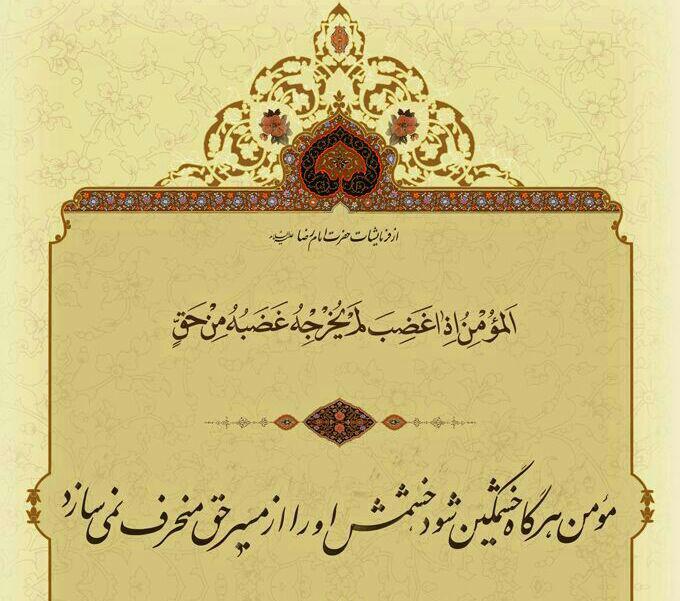 از فرمایشات حضرت امام رضا علیه‌السلام
اَلمُؤْمِنُ اِذٰا غَضِبَ لَمْ یُخْرِجْهُ غَضَبُهُ مِنْ حَقٍّ
مؤمن هرگاه خشمگین شود خشمش او را از مسیر حق منحرف نمی سازد